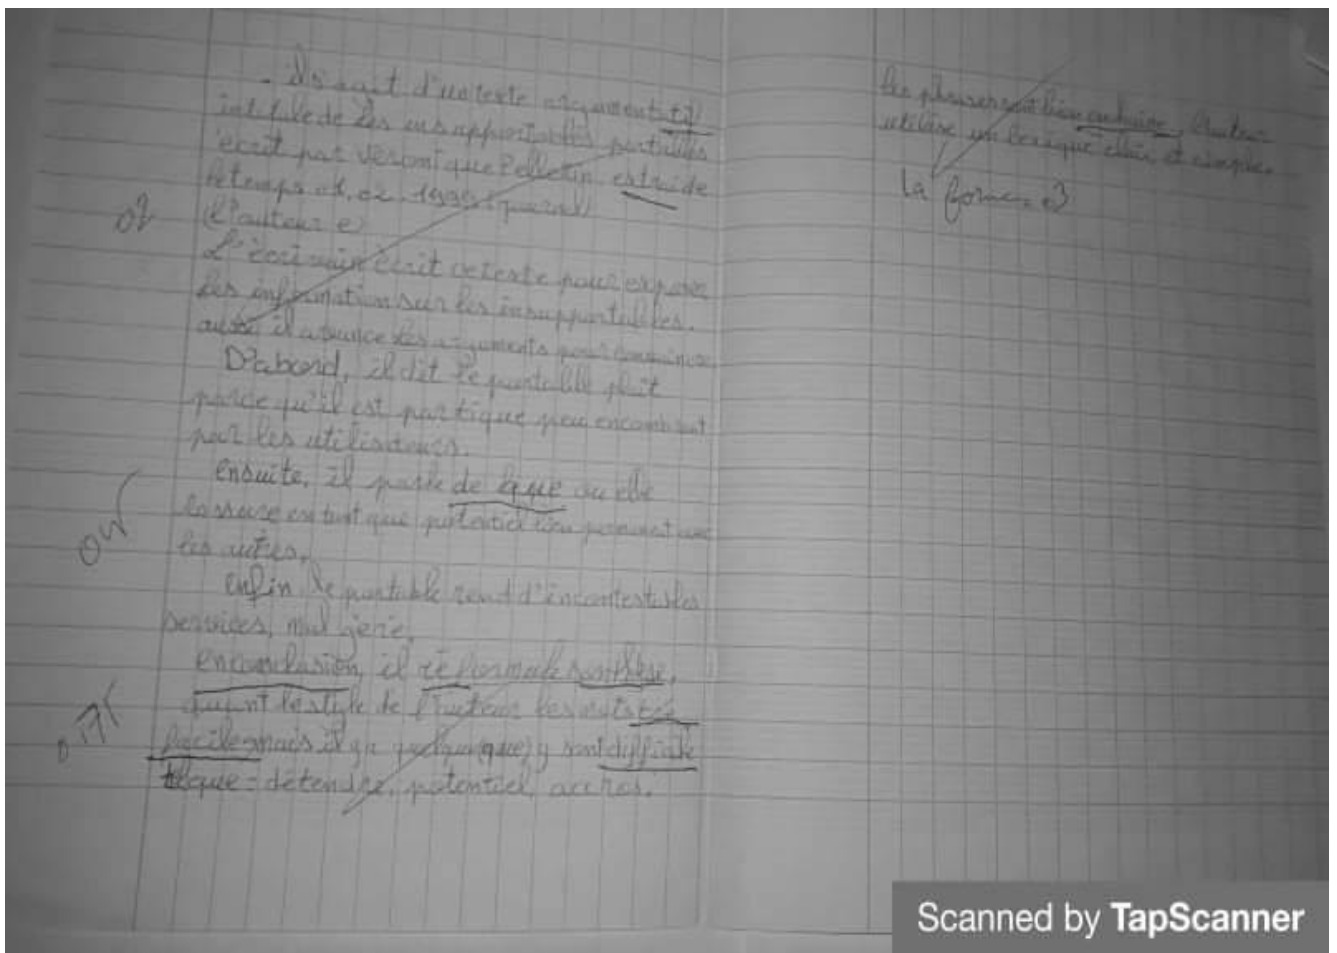 - Ils agit d'un texte argumentatif
intitule de les insupportables portables
ecrit par Véronique Pelletin extrai de
le temps 1999 (journal)
(L'auteur e)
02
L'écrivain écrit ce texte pour exposer
les information sur les insupportables.
aussi il avance les arguments pour convaincre
D'abord, il dit le portable plait
parce qu'il est partique peu encombrant
par les utilisateurs.
ensuite, il parle de que ou elle
rassure en tant que potentiel lien permanent avec
les autres.
enfin le portable rend d'incontestables
services, mal gerie,
en conclusion, il reformule
quant le style de l'auteur les mots
facile mais il ya quelque (que) y sont difficile
tleque = détendre, potentiel, accros.
les phrases sont bien l'auteur
utilise un lexique clair et simple.
la forme = 03
Scanned by TapScanner